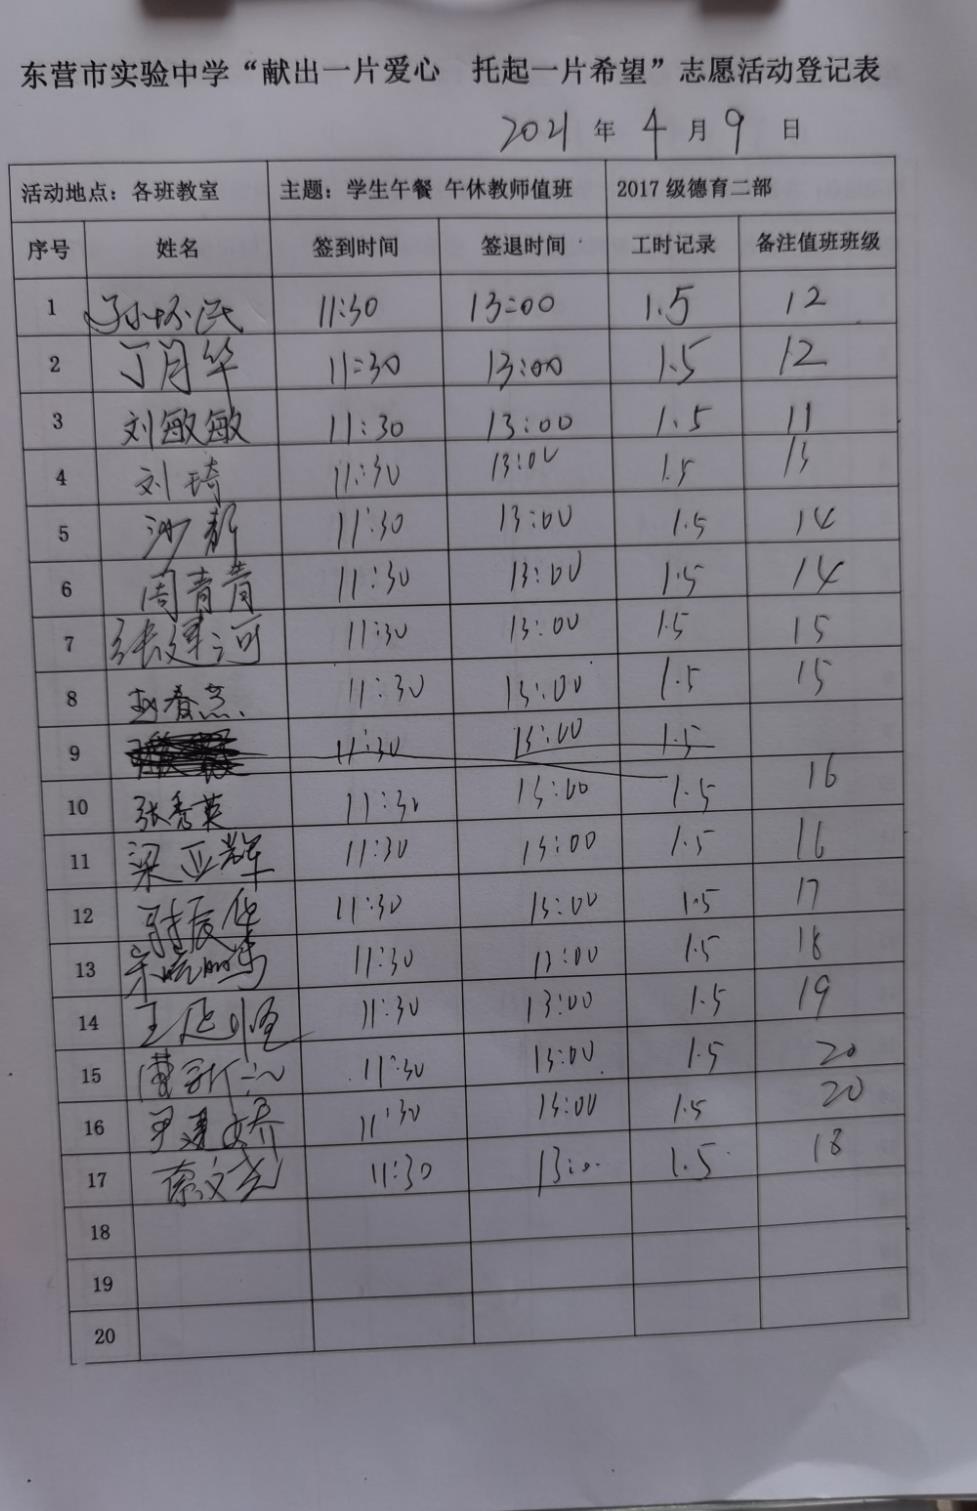 东营市实验中学“献出一片爱心 托起一片希望”志愿活动登记表
2021 年 4 月 9 日
活动地点：各班教室 主题：学生午餐 午休教师值班 2017 级德育二部
序号 姓名 签到时间 签退时间 工时记录 备注值班班级
1 11:30 13:00 1.5 12
2 丁月华 11:30 13:00 1.5 12
3 刘敏敏 11:30 13:00 1.5 11
4 刘琦 11:30 13:00 1.5 13
5 11:30 13:00 1.5 14
6 周青青 11:30 13:00 1.5 14
7 张建河 11:30 13:00 1.5 15
8 赵春燕 11:30 13:00 1.5 15
9 11:30 13:00 1.5
10 张秀英 11:30 13:00 1.5 16
11 梁亚辉 11:30 13:00 1.5 16
12 11:30 13:00 1.5 17
13 11:30 13:00 1.5 18
14 11:30 13:00 1.5 19
15 11:30 13:00 1.5 20
16 11:30 13:00 1.5 20
17 11:30 1.5 18
18
19
20